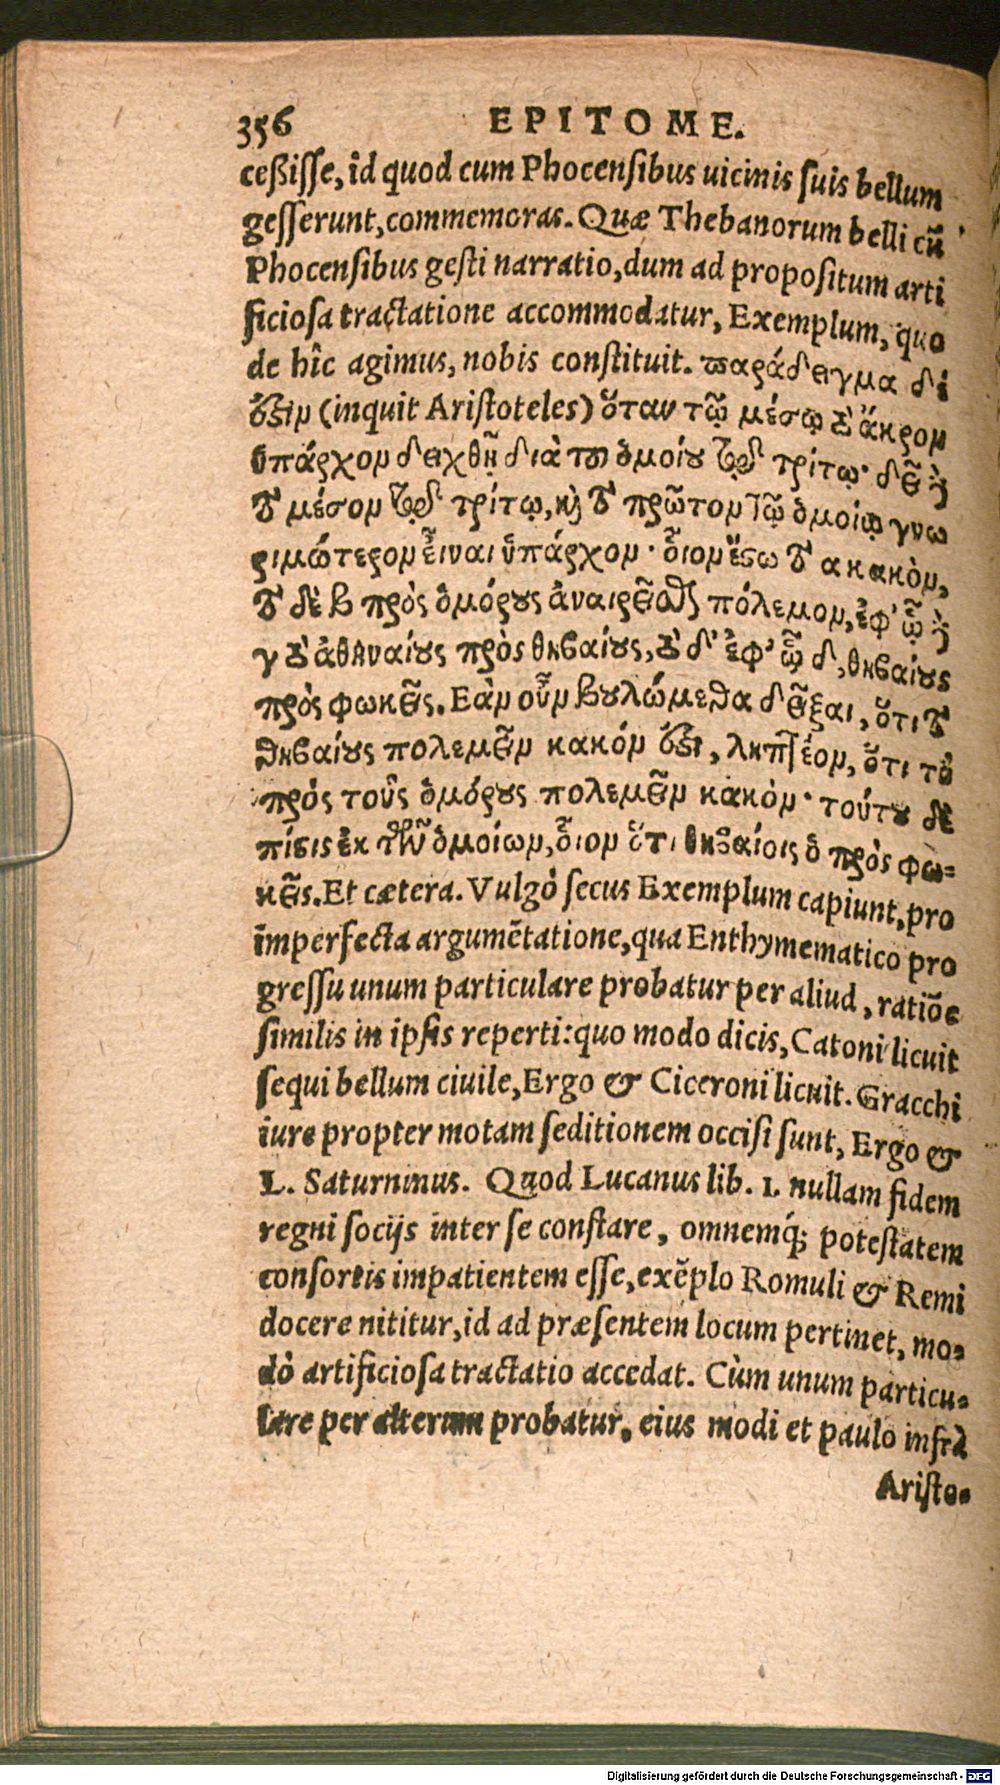 356 EPITOME.
ceßisse, id quod cum Phocensibus uicinis suis bellum
gesserunt, commemoras. Quæ Thebanorum belli cũ
Phocensibus gesti narratio, dum ad propositum arti
ficiosa tractatione accommodatur, Exemplum, quo
de hîc agimus, nobis constituit. παράδειγμα δέ
ἐστιν (inquit Aristoteles) ὅταν τῷ μέσῳ τὸ ἄκρον
ὑπάρχον δειχθῇ διὰ τοῦ ὁμοίου τῷ τρίτῳ· δεῖ ϗ̀
τὸ μέσον τῷ τρίτῳ, ϗ̀ τὸ πρῶτον τῷ ὁμοίῳ γνω
ριμώτερον εἶναι ὑπάρχον· οἷον ἔστω τὸ α κακὸν,
τὸ δὲ β πρὸς ὁμόρους ἀναιρεῖσθαι πόλεμον, ἐφ' ᾧ ϗ̀
γ τὸ ἀθηναίους πρὸς θηβαίους, τὸ δ' ἐφ' ᾧ δ, θηβαίους
πρὸς φωκεῖς. Εὰν οὖν βουλώμεθα δεῖξαι, ὅτι τὸ
θηβαίους πολεμεῖν κακόν ἐστι, ληπτέον, ὅτι τὸ
πρὸς τοὺς ὁμόρους πολεμεῖν κακὸν· τούτου δὲ
πίστις ἐκ τῶν ὁμοίων, οἷον ὅτι θηβαίοις ὁ πρὸς φω-
κεῖς. Et cætera. Vulgò secus Exemplum capiunt, pro
imperfecta argumẽtatione, qua Enthymematico pro
gressu unum particulare probatur per aliud, ratiõe
similis in ipsis reperti: quo modo dicis, Catoni licuit
sequi bellum ciuile, Ergo & Ciceroni licuit. Gracchi
iure propter motam seditionem occisi sunt, Ergo &
L. Saturninus. Quod Lucanus lib. 1. nullam fidem
regni socijs inter se constare, omnemq́; potestatem
consortis impatientem esse, exẽplo Romuli & Remi
docere nititur, id ad præsentem locum pertinet, mo-
dò artificiosa tractatio accedat. Cùm unum particu-
lare per alterum probatur, eius modi et paulo infrà
Aristo-
Digitalisierung gefördert durch die Deutsche Forschungsgemeinschaft - DFG